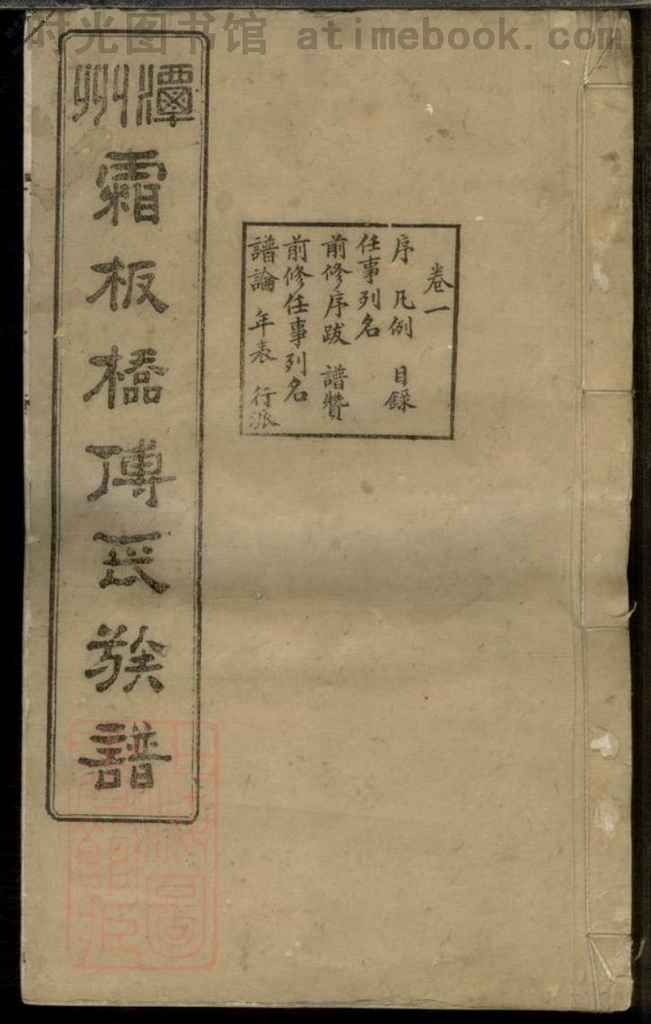 时光图书馆 atimebook.com
潭州
霜板橋傅氏族譜
卷一
序 凡例 目錄
任事列名
前修序跋 譜贊
前修任事列名
譜論 年表 行派